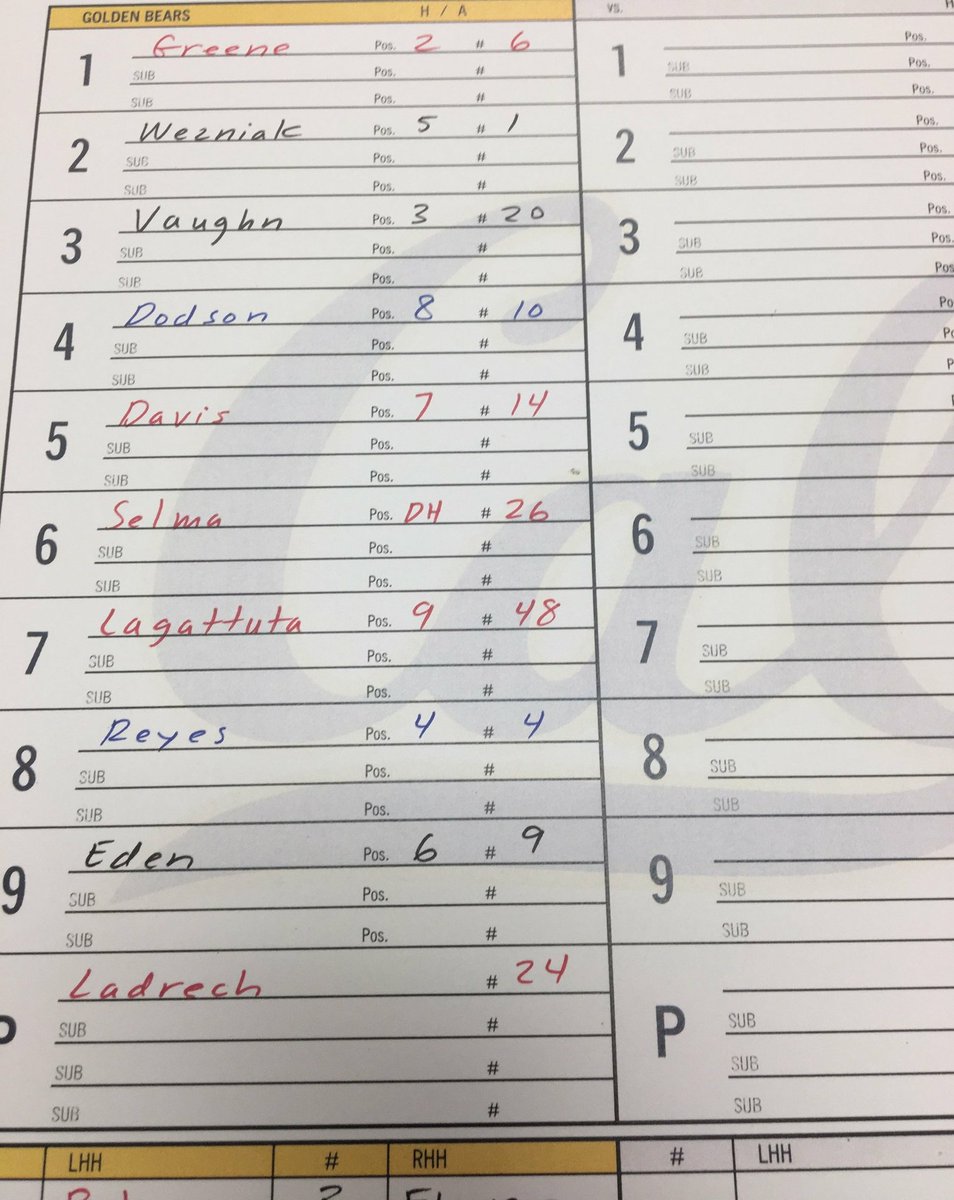 GOLDEN BEARS H / A vs. H
1 Greene Pos. 2 # 6 1 Pos.
SUB Pos. # SUB Pos.
SUB Pos. # SUB Pos.
2 Wezniak Pos. 5 # 1 2 Pos.
SUB Pos. # SUB Pos.
SUB Pos. # SUB Pos.
3 Vaughn Pos. 3 # 20 3 Pos.
SUB Pos. # SUB Pos.
SUB Pos. # SUB Pos
4 Dodson Pos. 8 # 10 4 Po
SUB Pos. # SUB Po
SUB Pos. # SUB P
5 Davis Pos. 7 # 14 5
SUB Pos. # SUB
SUB Pos. # SUB
6 Selma Pos. DH # 26 6
SUB Pos. # SUB
SUB Pos. # SUB
7 Lagattuta Pos. 9 # 48 7
SUB Pos. # SUB
SUB Pos. # SUB
8 Reyes Pos. 4 # 4 8
SUB Pos. # SUB
SUB Pos. # SUB
9 Eden Pos. 6 # 9 9
SUB Pos. # SUB
SUB Pos. # SUB
P Ladrech # 24 P
SUB # SUB
SUB # SUB
SUB # SUB
LHH # RHH # LHH
Cal